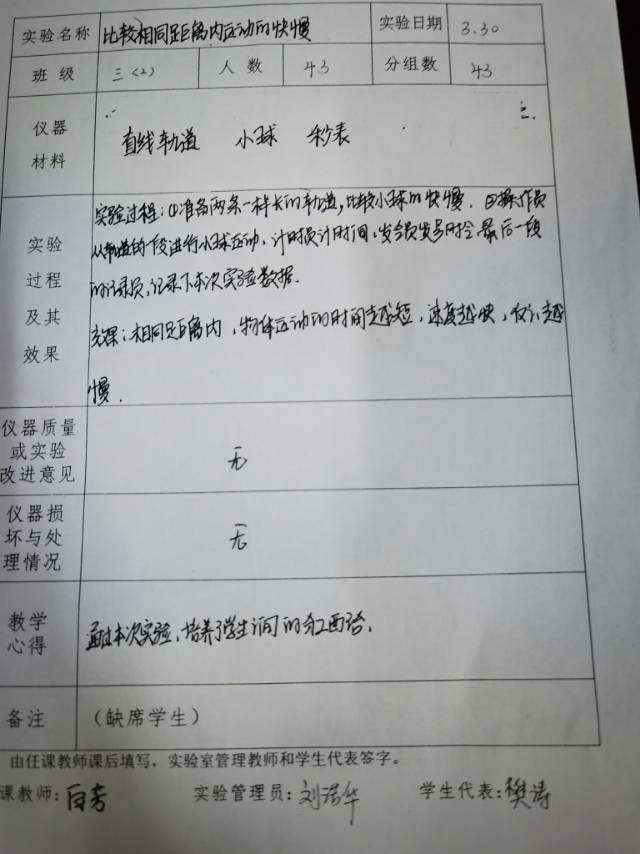 实验名称 比较相同距离内运动的快慢 实验日期 3.30
班级 三(2) 人数 43 分组数 43
仪器材料 直线轨道 小球 秒表
实验过程及其效果
实验过程:①准备两条一样长的轨道,比较小球的快慢.②操作员
从轨道的一段进行小球运动,计时员计时间,发令员发号时令.最后一段
的记录员,记录下本次实验数据.
效果:相同距离内,物体运动的时间越短,速度越快,反之越
慢.
仪器质量或实验改进意见 无
仪器损坏与处理情况 无
教学心得 通过本次实验,培养了学生间的
备注 (缺席学生)
由任课教师课后填写,实验室管理教师和学生代表签字。
课教师:白芳 实验管理员:刘浩华 学生代表:樊涛